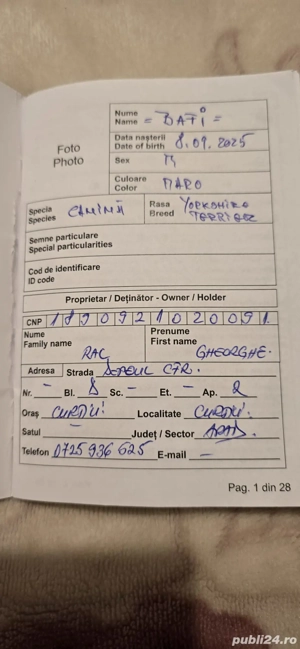 Foto
Photo
Nume
Name = BATI =
Data nașterii
Date of birth 8.09.2025
Sex M
Culoare
Color MARO
Specia
Species CANINĂ
Rasa
Breed YORKSHIRE TERRIER
Semne particulare
Special particularities
Cod de identificare
ID code
Proprietar / Deținător - Owner / Holder
CNP 1 8 9 0 9 2 1 0 2 0 0 9 1
Nume
Family name
RAC
Prenume
First name
GHEORGHE
Adresa Strada CFR.
Nr. - Bl. 8 Sc. - Et. - Ap. 2
Oraș CURTICI Localitate CURTICI.
Satul - Județ / Sector ARAD.
Telefon 0725936625 E-mail -
Pag. 1 din 28
publi24.ro